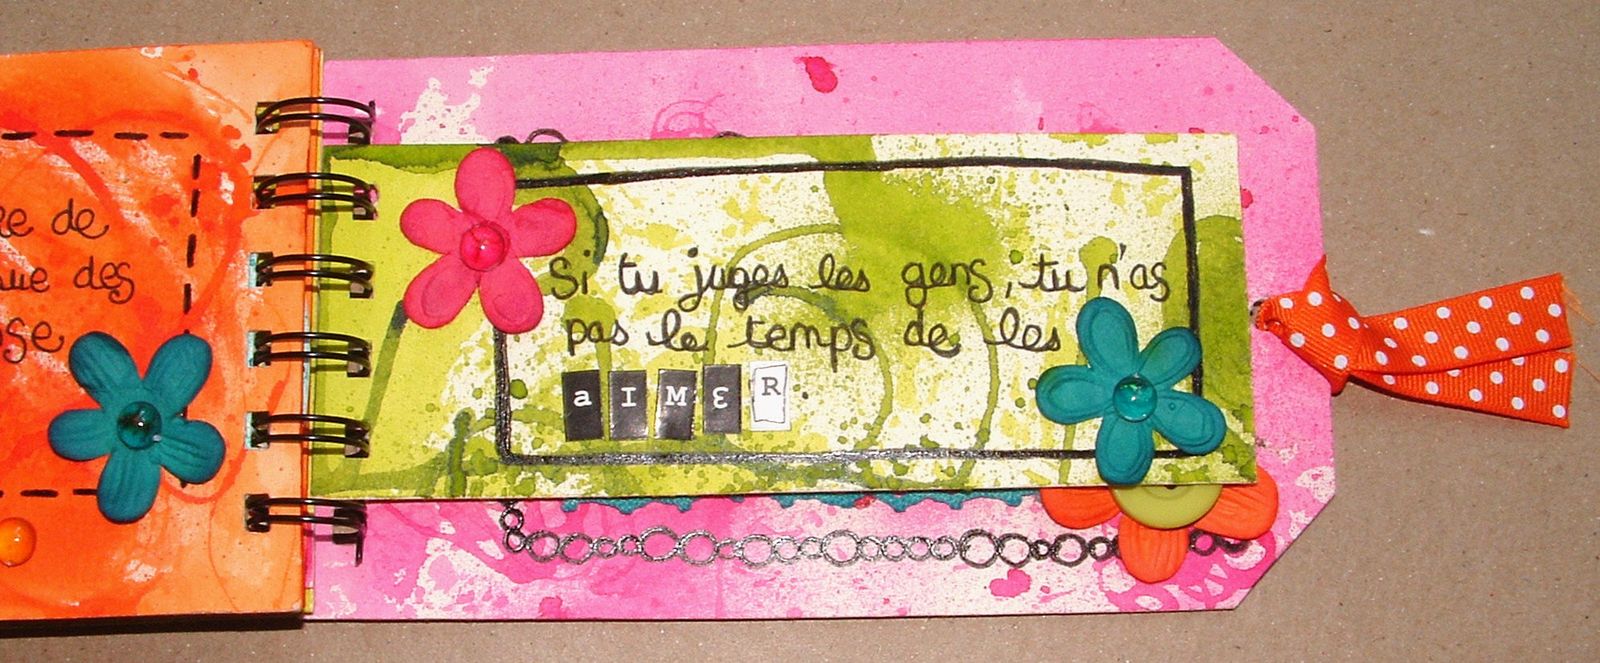 de
des
Si tu juges les gens, tu n'as
pas le temps de les
aIMER